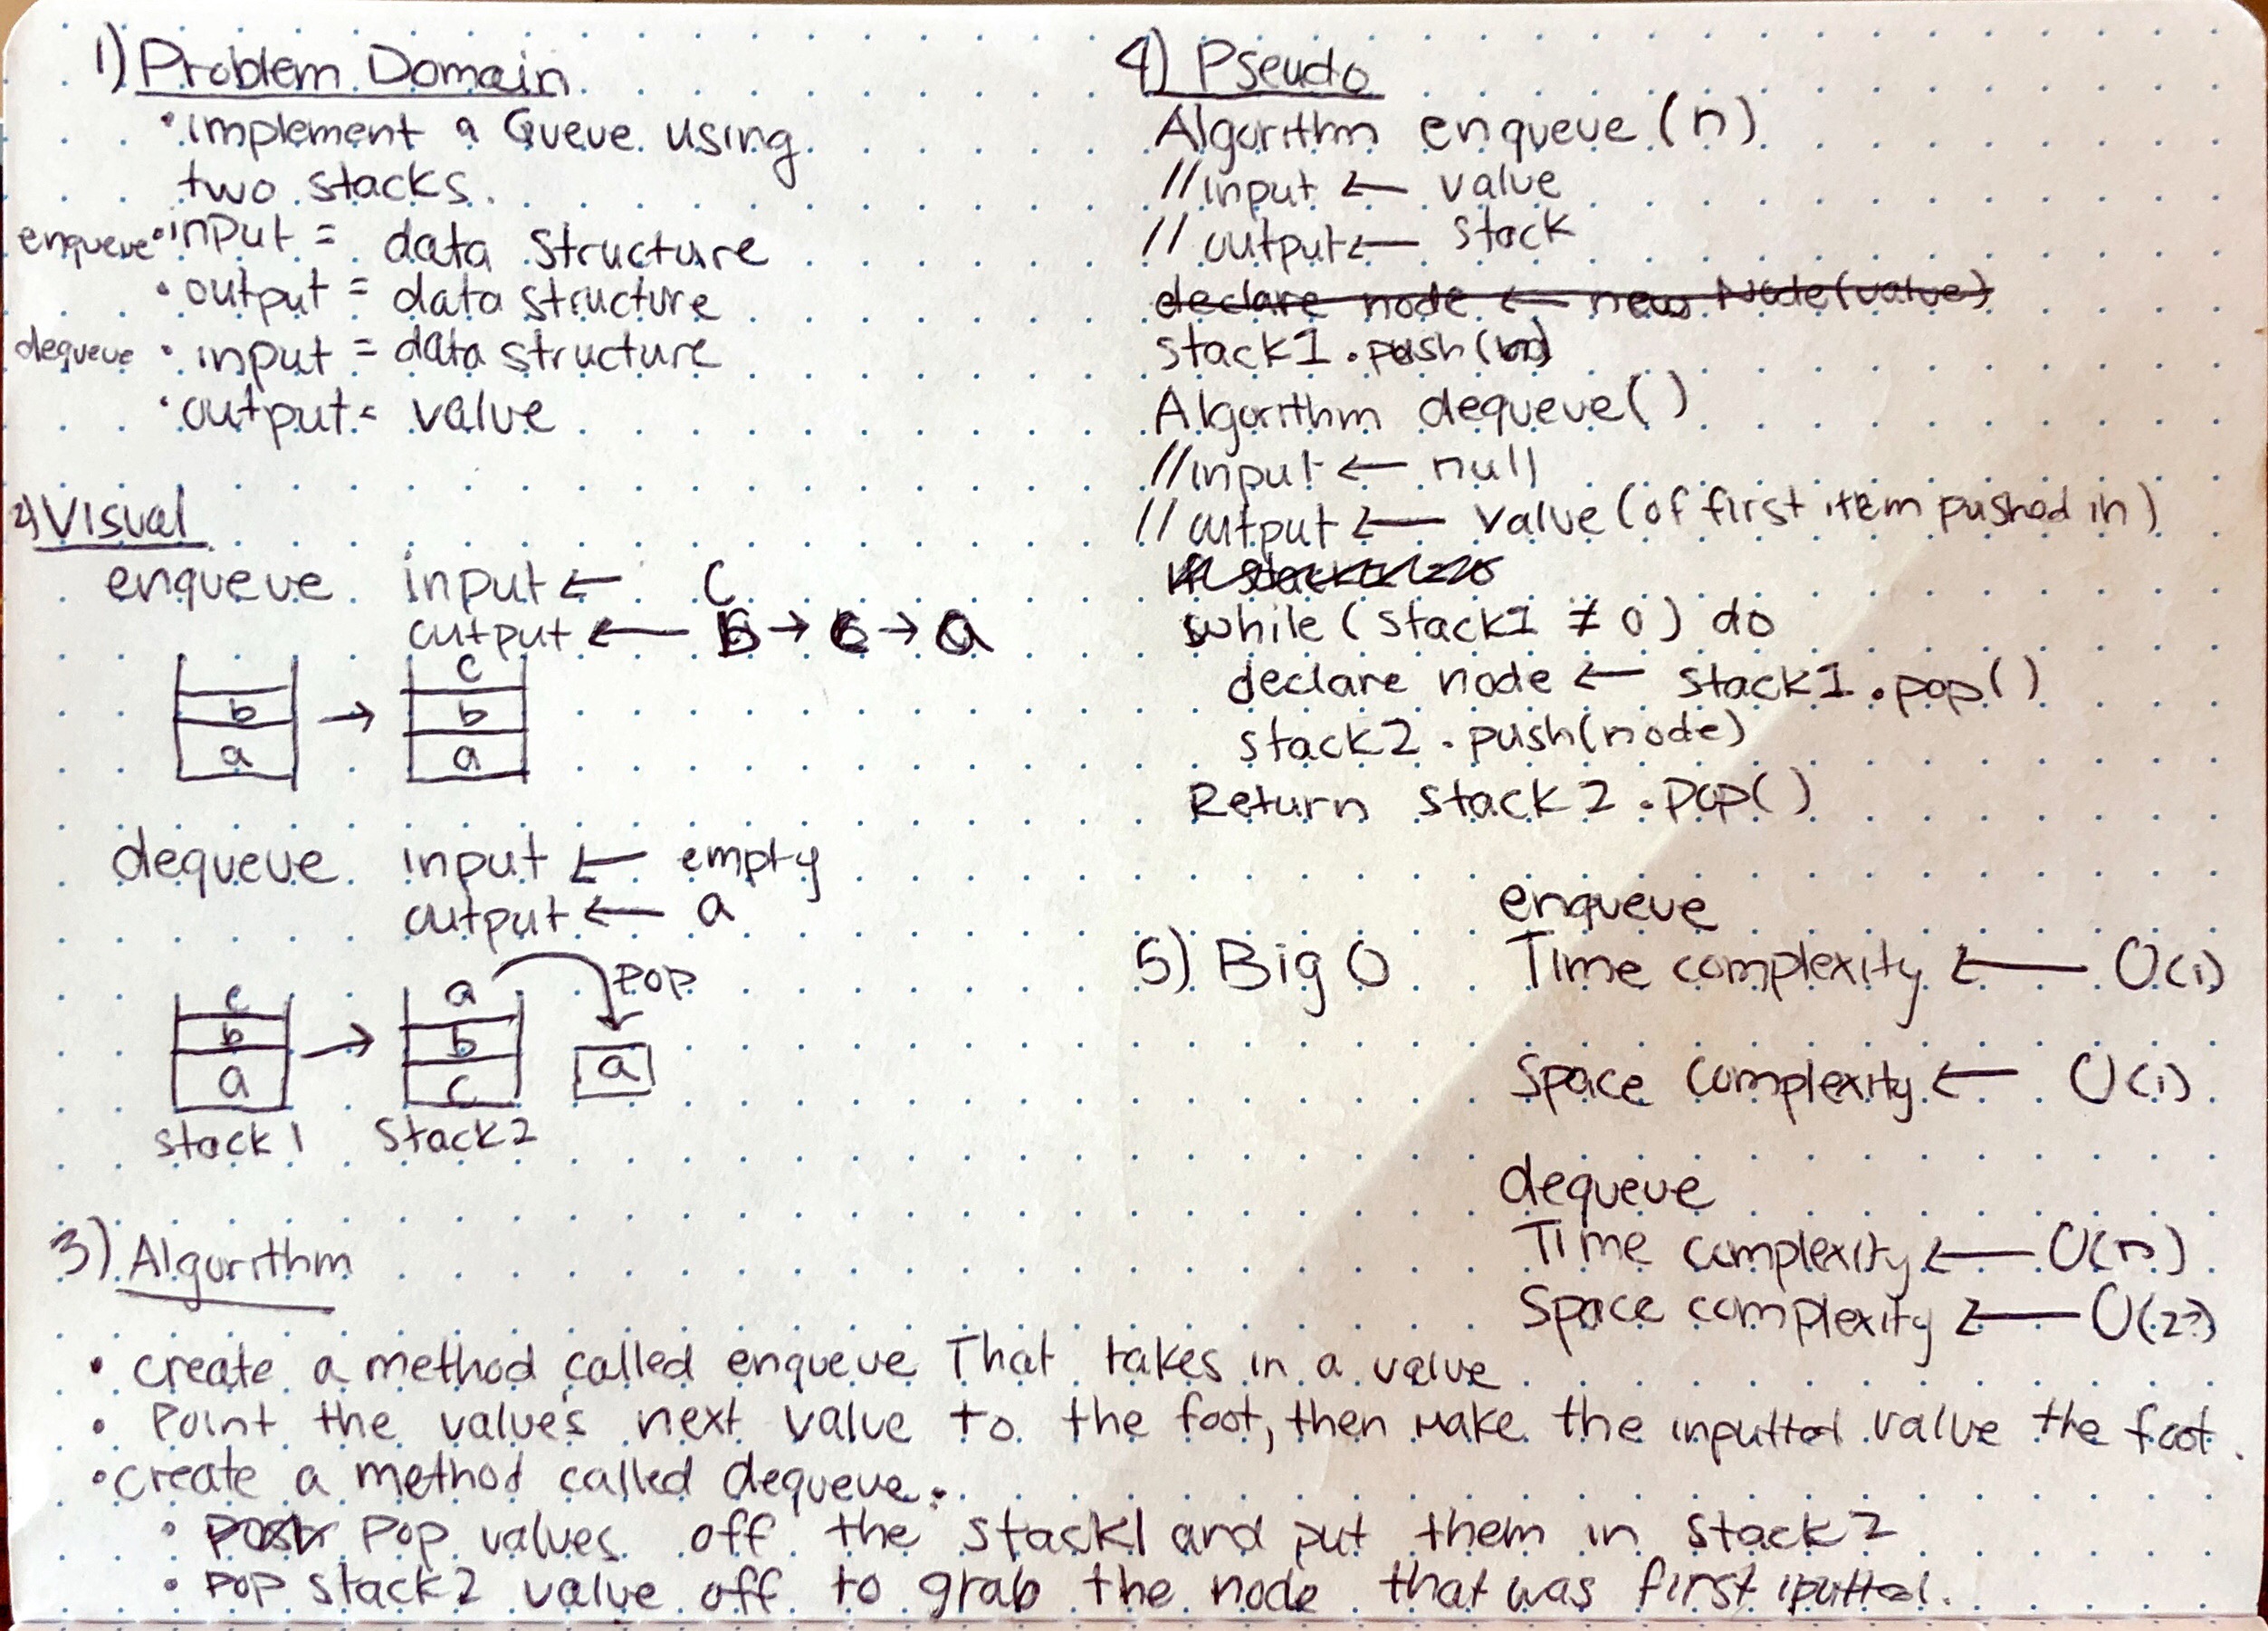 1) Problem Domain
• implement a Queue using
two stacks.
enqueue • input = data structure
• output = data structure
dequeue • input = data structure
• output = value
2) Visual
enqueue input ← c
output ← b → c → a
b → c
a b
a
dequeue input ← empty
output ← a
c a pop
b → b
a c a
stack 1 stack 2
3) Algorithm
• create a method called enqueue That takes in a value
• Point the values next value to the foot, then make the inputted value the foot.
• create a method called dequeue.
• push Pop values off the stack1 and put them in stack 2
• pop stack2 value off to grab the node that was first iputted.
4) Pseudo
Algorithm enqueue (n)
// input ← value
// output ← stack
declare node ← new Node(value)
stack1.push( )
Algorithm dequeue()
// input ← null
// output ← value (of first item pushed in)
while (stack1 ≠ 0) do
declare node ← stack1.pop()
stack2.push(node)
Return stack2.pop()
5) Big O
enqueue
Time complexity ← O(1)
Space complexity ← O(1)
dequeue
Time complexity ← O(n)
Space complexity ← O(2?)